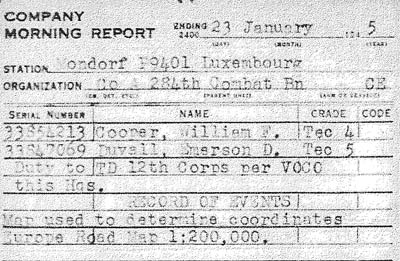 COMPANY
MORNING REPORT ENDING 2400 23 January 194 5
(DAY) (MONTH) (YEAR)
STATION Mondorf P9401 Luxembourg
ORGANIZATION Co A 284th Combat Bn CE
(CO. DET. ETC.) (PARENT UNIT) (ARM OR SERVICE)
SERIAL NUMBER NAME GRADE CODE
33664213 Cooper, William F. Tec 4
33847069 Duvall, Emerson D. Tec 5
Duty to TD 12th Corps per VOCO
this Hqs.
RECORD OF EVENTS
Map used to determine coordinates
Europe Road Map 1:200,000.